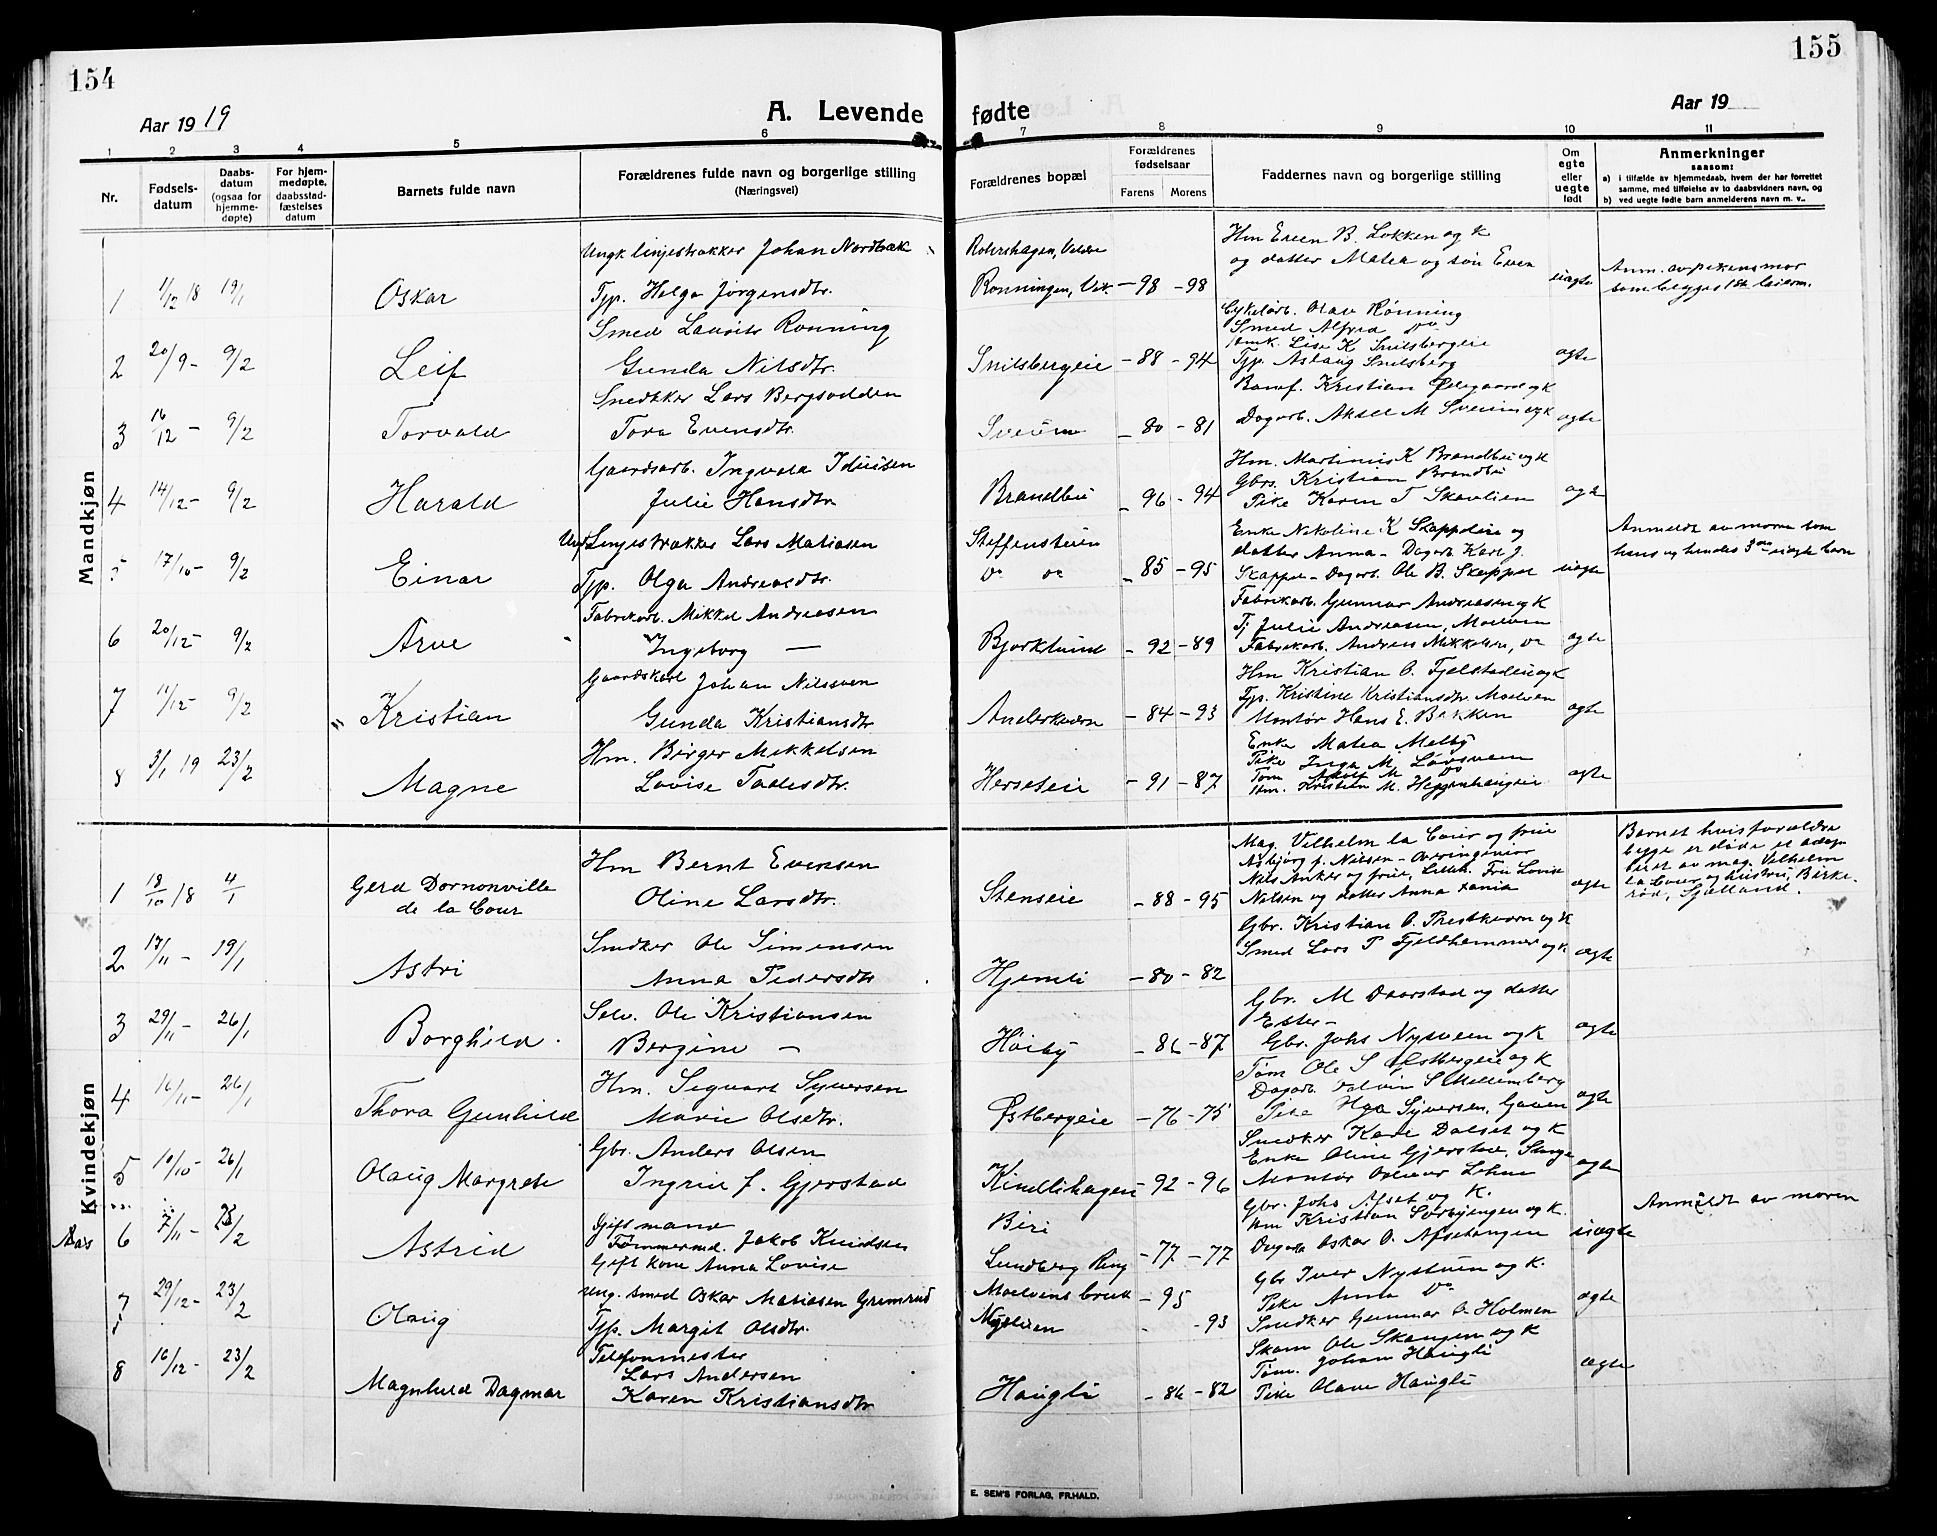 154
155
Aar 1919
A. Levende fødte
Aar 19
1 2 3 4 5 6 7 8 9 10 11
Nr.
Fødsels-
datum
Daabs-
datum
(ogsaa for
hjemme-
døpte)
For hjem-
medøpte,
daabsstad-
fæstelses
datum
Barnets fulde navn
Forældrenes fulde navn og borgerlige stilling
(Næringsvei)
Forældrenes bopæl
Forældrenes
fødselsaar
Farens Morens
Faddernes navn og borgerlige stilling
Om
egte
eller
uegte
født
Anmerkninger
saasom:
a) i tilfælde av hjemmedaab, hvem der har forrettet
samme, med tilføielse av to daabsvidners navn, og
b) ved uegte fødte barn anmelderens navn m. v..
Mandkjøn
1 1/12 18 19/1 Oskar
Ungk. linjestrækker Johan Nordbak
Tjp. Helga Jørgensdtr.
Rønningen, -98 -98
Hm Even B. Løkken og k
og datter Matea og søn Even
uægte
Anm. av pikens mor
2 20/9 - 9/2 Leif
Smed Laurits Rønning
Gunda Nilsdtr.
Snilsbergeie -88 -94
Cykelarb. Olav Rønning
Smed Alfred Do
Lise K Snilsbergeie
Tjp. Aslaug Snilsberg
ægte
3 16/12 - 9/2 Torvald
Snedkker Lars Bergsodden
Tora Evensdtr.
Sveum - 80 - 81
Kristian Ødegaard og k
Dagarb. Aksel M Sveum og k
ægte
4 14/12 - 9/2 Harald
Gaardsarb. Ingvald Iduusen
Julie Hansdtr.
Brandbu - 96 - 94
Hm. Martinus K Brandbu og k
Gbrs. Kristian Brandbu
Pike Karen T Skavlien
ægte
5 17/10 - 9/2 Einar
Linjestrækker Lars Matiasen
Tjp. Olga Andreasdtr.
Steffenseien
Do Do - 85 - 95
Enke Nikoline K Skappeleie og
datter Anna - Dagarb Karl J.
Skappel - Dagarb. Ole B. Skappel
uægte
Anmeldt av moren som
hans og hendes 3die uægte barn
6 20/12 - 9/2 Arve
Fabrikarb. Mikkel Andreasen
Ingeborg —
Bjørklund - 92 - 89
Fabrikarb. Gunnar Andreasen og k
Tj Julie Andreasen, Moelven
Fabrikarb. Andreas Mikkelsen, Do
ægte
7 11/12 - 9/2 Kristian
Gaardskarl Johan Nilssven
Gunda Kristiansdtr
Anderskvern - 84 - 93
Hm Kristian O. Fjelstadeie og k
Tjp. Kristine Kristiansdtr. Moelven
Montør Hans E. Bakken
ægte
8 3/1 19 23/2 Magne
Hm. Birger Mikkelsen
Lovise Tollesdtr.
Herseteie - 91 - 87
Enke Matea Melby
Pike Inga M. Løvsveen
Tøm Adolf M Do
Hm. Kristian M. Heggenhaugeie
ægte
Kvindekjøn
1 18/10 18 4/1 Gerd Dornonville
de la Cour
Hm Bernt Evensen
Oline Larsdtr.
Stenseie - 88 - 95
Mag. Vilhelm la Cour og frue
Asbjørg f. Nielsen - Overingeniør
Nils Anker og frue, Lilleh. Fru Lovise
Nielsen og datter Anna
ægte
Barnet hvis forældre
begge er døde er adop-
tert av mag. Vilhelm
la Cour og hustru, Birke-
rød, Sjælland.
2 17/11 - 19/1 Astri
Snedker Ole Simensen
Anna Pedersdtr
Hjemli - 80 - 82
Gbr. Kristian O. Prestkvern og k
Smed Lars P Fjeldhammer og k
ægte
3 29/11 - 26/1 Borghild
Selv. Ole Kristiansen
Bergine —
Høiby - 86 - 87
Gbr. M Daarstad og datter
Ester -
Gbr. Johs Nysveen og k
ægte
4 16/11 - 26/1 Thora Gunhild
Hm. Sigvart Syversen
Marie Olsdtr.
Østbergeie - 76 - 75
Tøm Ole S Østbergeie og k
Dagarb. S Mellemberg
Pike Olga Syversen,
ægte
5 10/10 - 26/1 Olaug Margrete
Gbr. Anders Olsen
Ingrid f. Gjerstad
Kindlihagen - 92 - 96
Snedker Kare Dalset og k
Enke Oline Gjerstad, Stange
Montør Lehne
ægte
Aas 6 7/11 - 23/2 Astrid
Gift mand
Tømmermd. Jakob Knudsen
Gift kone Anna Lovise
Biri
Lundberg Ring - 77 - 77
Gbr. Johs Afset og K.
Hm Kristian Sørbyengen og k.
Dagarb Oskar O. Afsetengen
uægte
Anmeldt av moren
7 29/12 - 23/2 Olaug
Ung. smed Oskar Matiasen Grimsrud
Tjp. Margit Olsdtr.
Moelvens bruk - 95
- 93
Gbr Iver Nystuen og k.
Pike Anna Do
Snedker Gunnar O. Holmen
ægte
8 16/12 - 23/2 Magnhild Dagmar
Telefonmester
Lars Andersen
Karen Kristiansdtr
Haugli - 86 - 82
Skom Ole Skaugen og k
Tøm. Johan Haugli
Pike Olave Haugli
ægte
E. SEM'S FORLAG, FR.HALD.